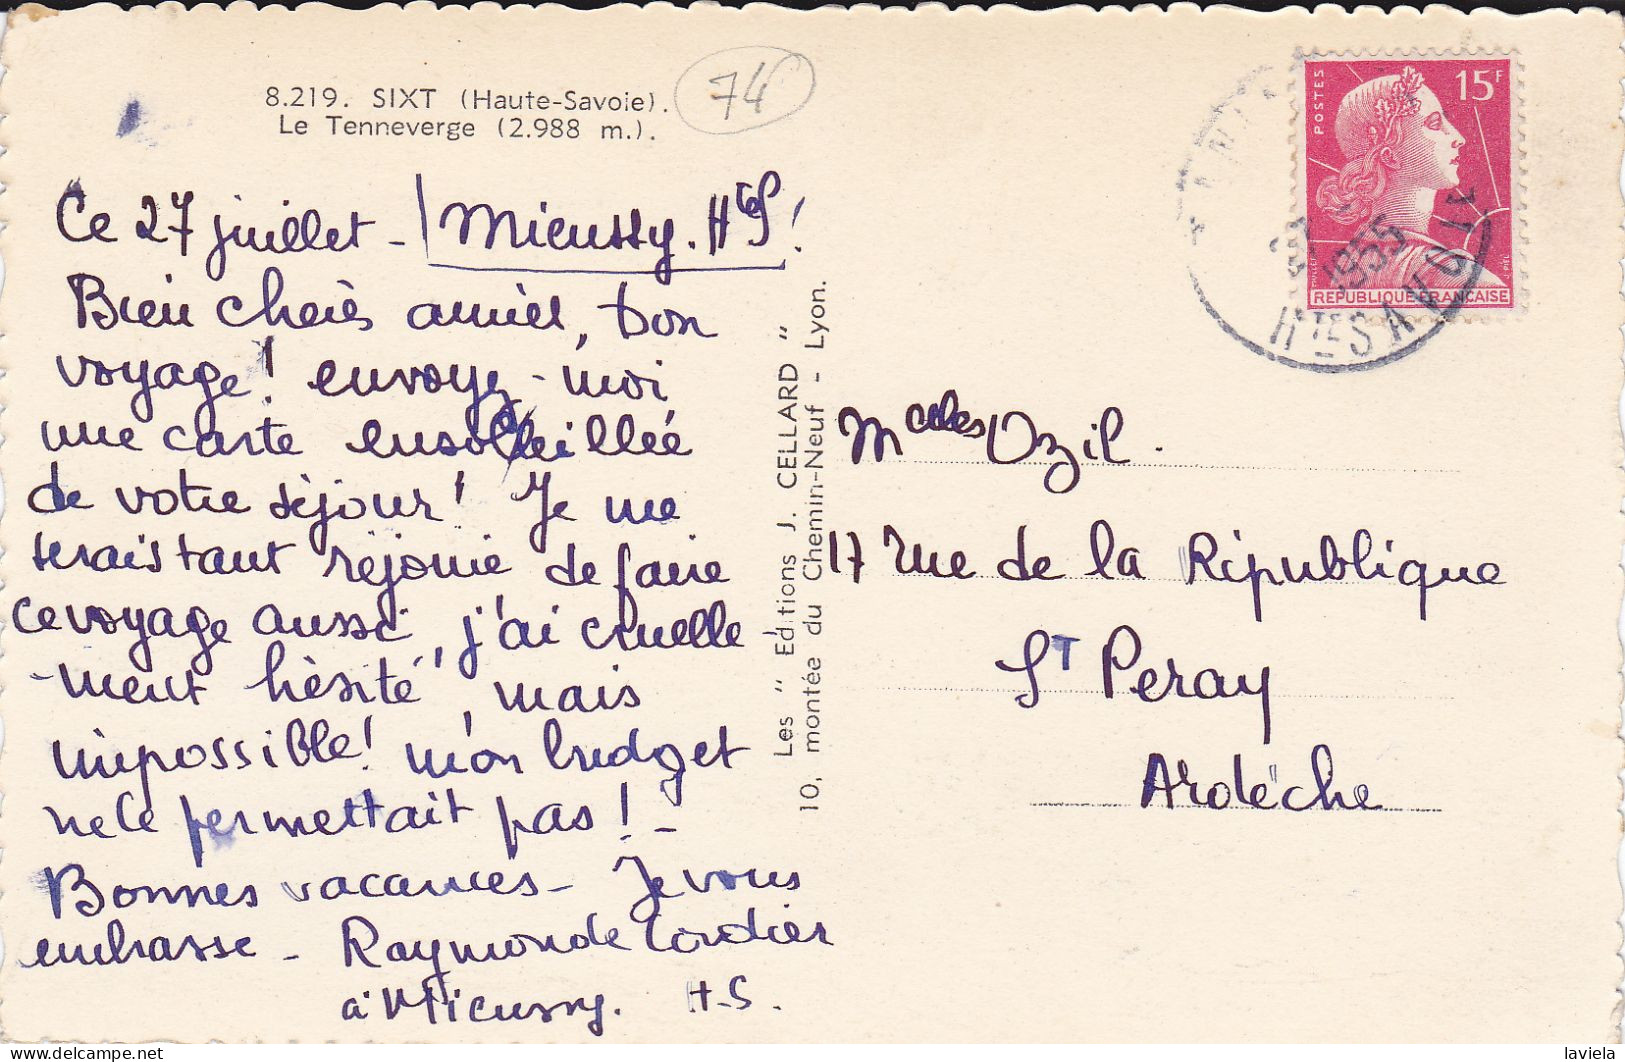 8.219. SIXT (Haute-Savoie).
Le Tenneverge (2.988 m.).
74
Ce 27 juillet - Mieussy. Hte S!
Bien chères amies, bon
voyage! envoyez-moi
une carte ensoleillée
de votre séjour! Je me
serais tant réjouie de faire
ce voyage aussi, j'ai cruelle
-ment hésité, mais
impossible! mon budget
ne le permettait pas! -
Bonnes vacances - Je vous
embrasse - Raymonde Cordier
à Mieussy. H-S.
Les "Editions J. CELLARD"
10, montée du Chemin-Neuf - Lyon.
POSTES
15F
REPUBLIQUE FRANÇAISE
1955
Hte SAVOIE
Melles Ozil.
17 rue de la République
St Peray
Ardèche
laviela